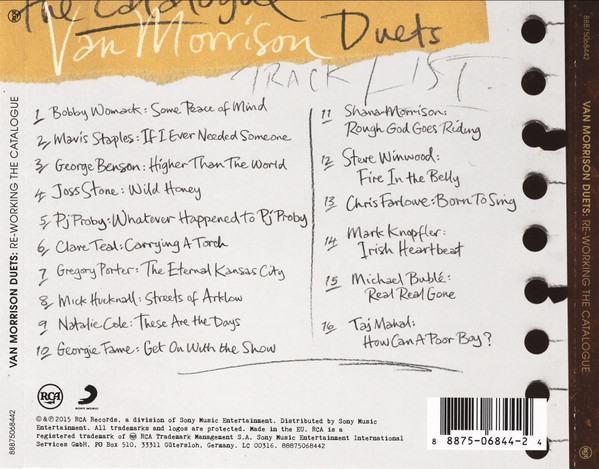 the Catalogue
Van Morrison Duets
TRACK LIST.
1 Bobby Womack: Some Peace of Mind
2 Mavis Staples: If I Ever Needed Someone
3 George Benson: Higher Than The World
4 Joss Stone: Wild Honey
5 Pj Proby: Whatever Happened to Pj Proby
6 Clare Teal: Carrying A Torch
7 Gregory Porter: The Eternal Kansas City
8 Mick Hucknall: Streets of Arklow
9 Natalie Cole: These Are the Days
10 Georgie Fame: Get On With the Show
11 Shana Morrison:
Rough God Goes Riding
12 Steve Winwood:
Fire In the Belly
13 Chris Farlowe: Born To Sing
14 Mark Knopfler:
Irish Heartbeat
15 Michael Bublé:
Real Real Gone
16 Taj Mahal:
How Can A Poor Boy?
RCA
SONY MUSIC
℗&© 2015 RCA Records, a division of Sony Music Entertainment. Distributed by Sony Music
Entertainment. All trademarks and logos are protected. Made in the EU. RCA is a
registered trademark of RCA Trademark Management S.A. Sony Music Entertainment International
Services GmbH, PO Box 510, 33311 Gütersloh, Germany. LC 00316
8 88875-06844-2 4
VAN MORRISON DUETS: RE-WORKING THE CATALOGUE
88875068442
88875068442
VAN MORRISON DUETS: RE-WORKING THE CATALOGUE